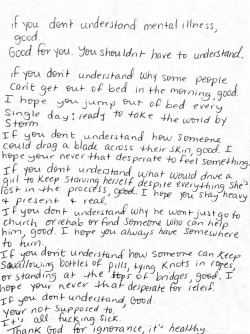 if you don't understand mental illness,
good.
Good for you. You shouldn't have to understand.
if you don't understand why some people
can't get out of bed in the morning, good
I hope you jump out of bed every
single day; ready to take the world by
Storm
If you don't understand how someone
could drag a blade across their skin, good. I
hope your never that desperate to feel something.
If you don't understand what would drive a
girl to keep starving herself despite everything she's
lost in the process, good. I hope you stay heavy
& present & real
If you don't understand why he won't just go to
church or rehab or find someone who can help
him, good. I hope you always have somewhere
to turn.
If you don't understand how someone can keep
swallowing bottles of pills, tying knots in ropes,
or standing at the tops of bridges, good. I
hope your never that desperate for releif.
If you don't understand, Good.
your not supposed to
It's all fucking sick.
Thank God for ignorance, it's healthy.